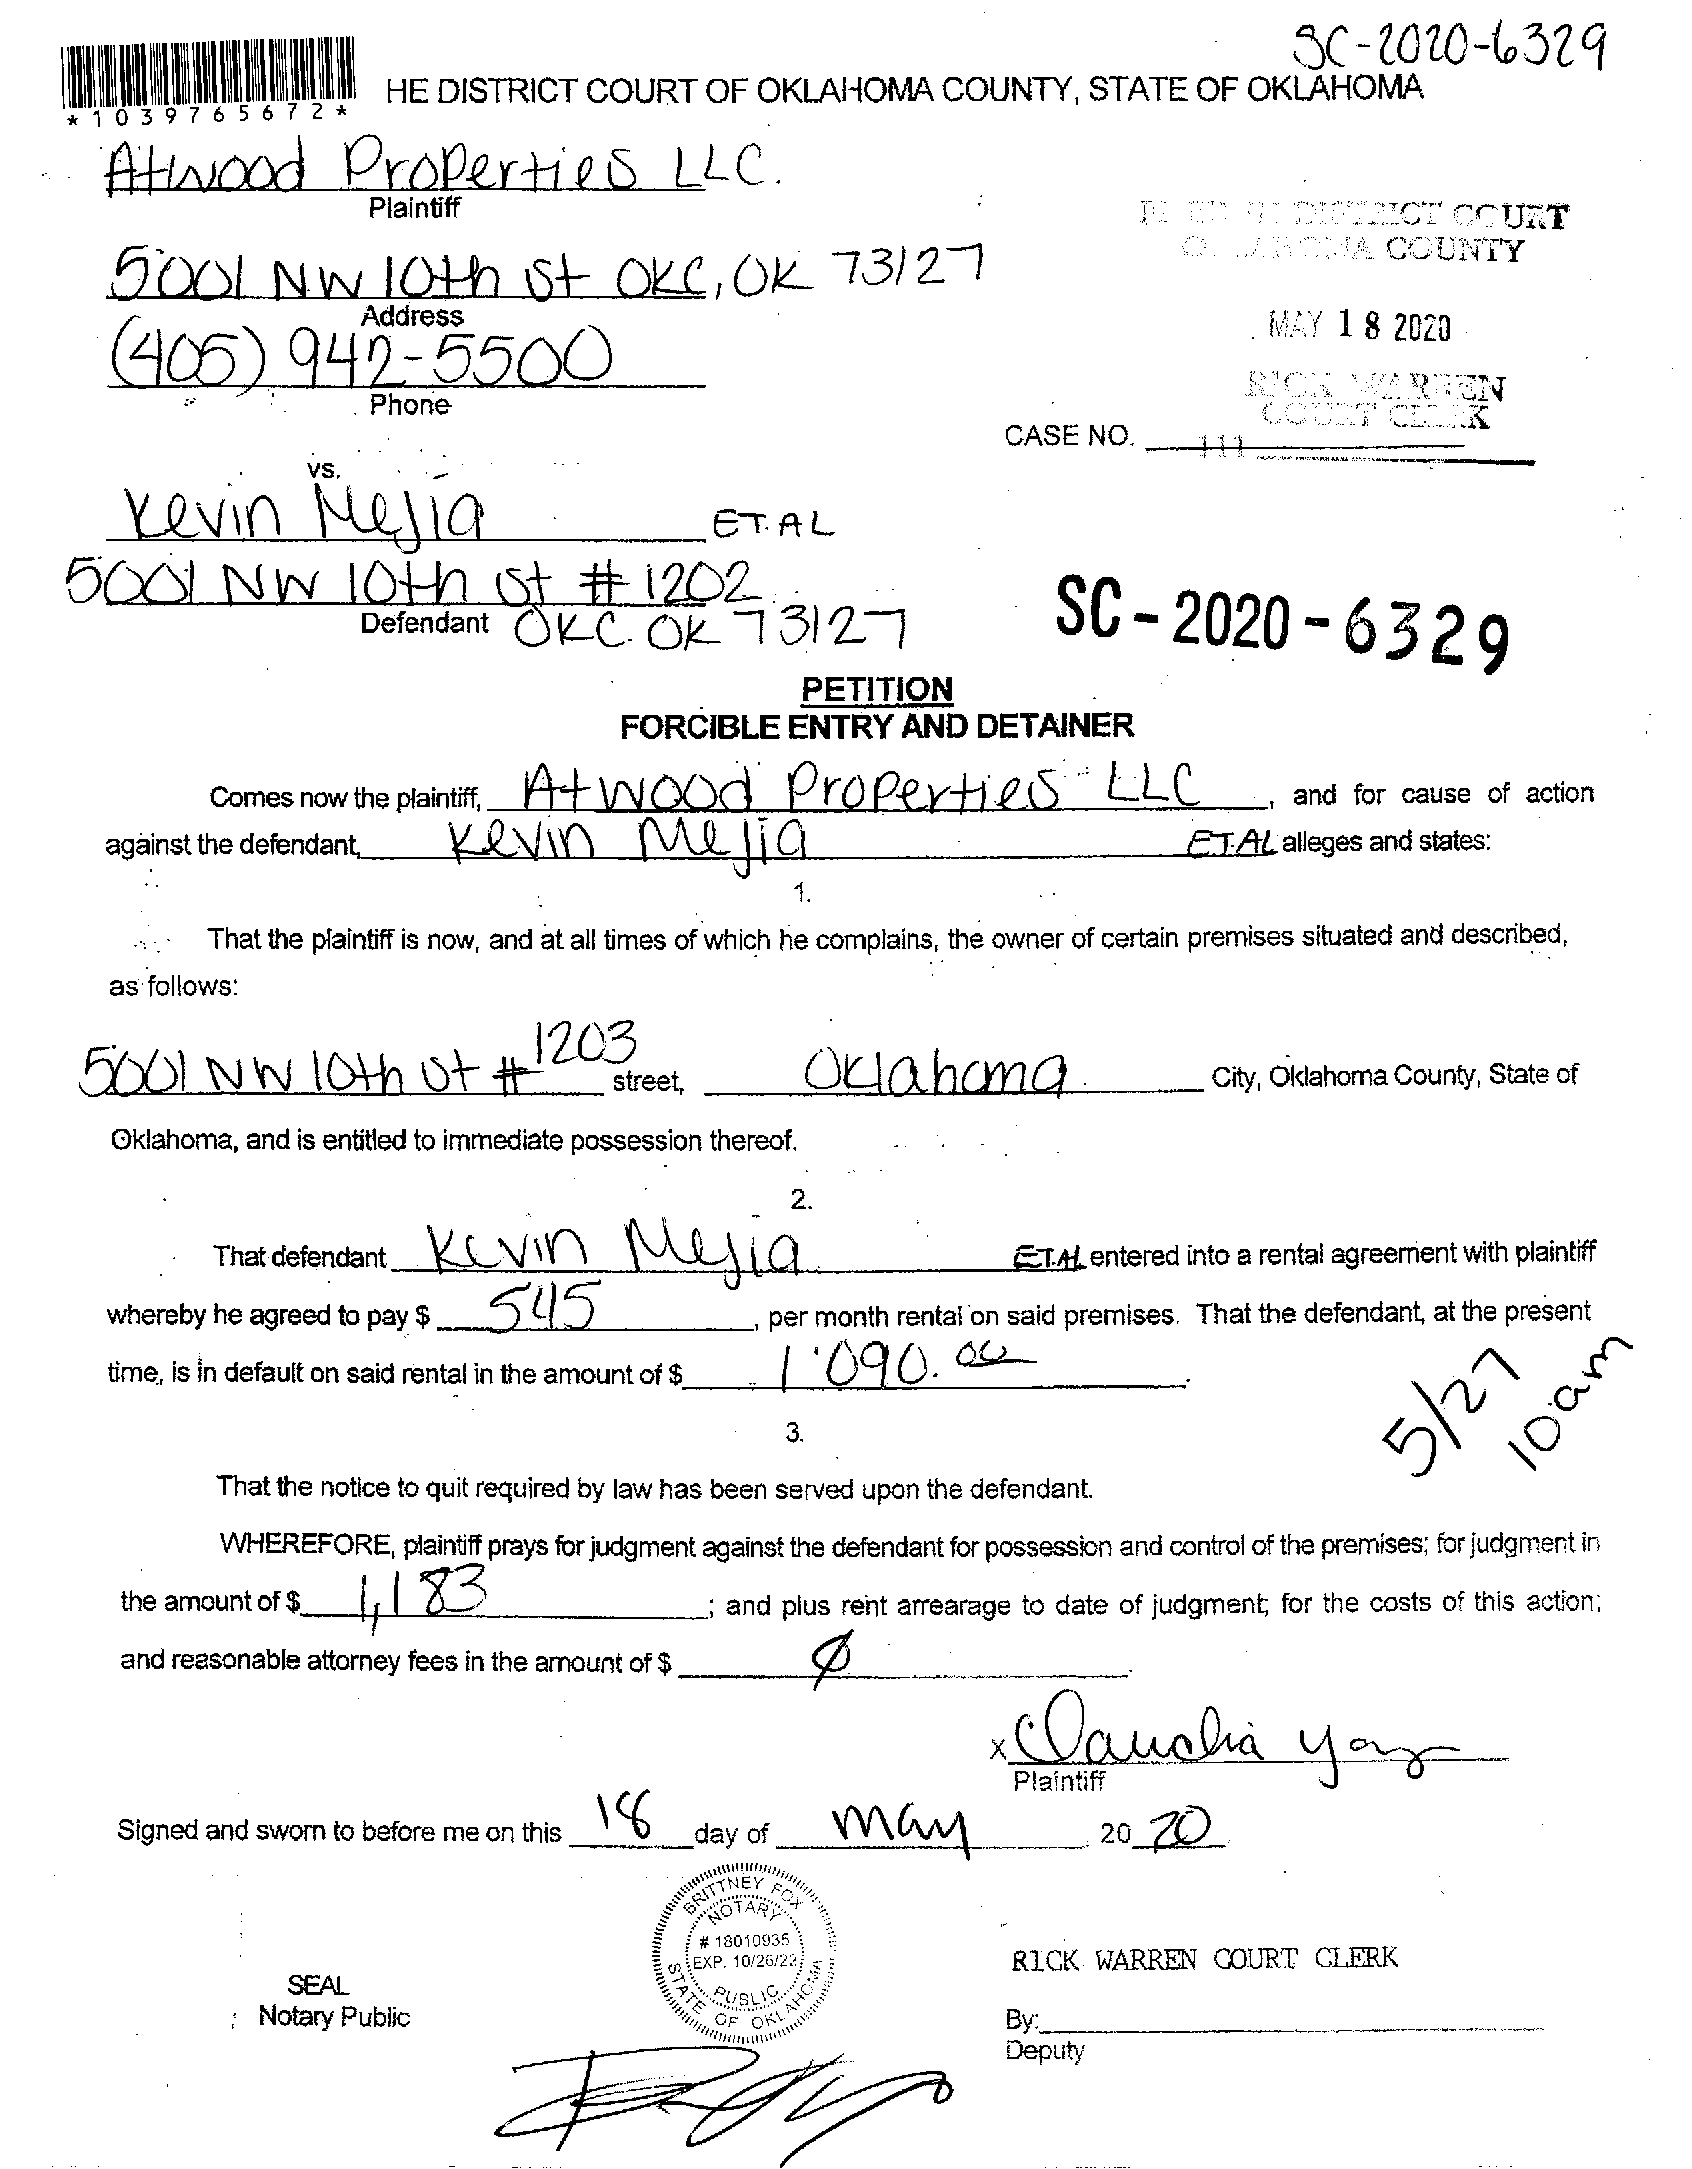 SC-2020-6329
*1039765672*
HE DISTRICT COURT OF OKLAHOMA COUNTY, STATE OF OKLAHOMA
Atwood Properties LLC.
Plaintiff
DISTRICT COURT
COUNTY
5001 NW 10th St OKC, OK 73127
Address
MAY 18 2020
(405) 942-5500
Phone
RICK WARREN
COURT CLERK
CASE NO.
111
vs.
Kevin Mejia ET.AL
5001 NW 10th St # 1202
Defendant OKC. OK 73127
SC-2020-6329
PETITION
FORCIBLE ENTRY AND DETAINER
Comes now the plaintiff, Atwood Properties LLC, and for cause of action
against the defendant, Kevin Mejia ET.AL alleges and states:
1.
That the plaintiff is now, and at all times of which he complains, the owner of certain premises situated and described,
as follows:
5001 NW 10th St # 1203 street, Oklahoma City, Oklahoma County, State of
Oklahoma, and is entitled to immediate possession thereof.
2.
That defendant Kevin Mejia ET.AL entered into a rental agreement with plaintiff
whereby he agreed to pay $ 545, per month rental on said premises. That the defendant, at the present
time, is in default on said rental in the amount of $ 1'090.00.
5/27
10am
3.
That the notice to quit required by law has been served upon the defendant.
WHEREFORE, plaintiff prays for judgment against the defendant for possession and control of the premises; for judgment in
the amount of $ 1,183; and plus rent arrearage to date of judgment; for the costs of this action;
and reasonable attorney fees in the amount of $ Ø.
x Claudia
Plaintiff
Signed and sworn to before me on this 18 day of May 20 20
BRITTNEY FOX
NOTARY
# 18010935
EXP. 10/26/22
PUBLIC
STATE OF OKLAHOMA
SEAL
Notary Public
RICK WARREN COURT CLERK
By:
Deputy